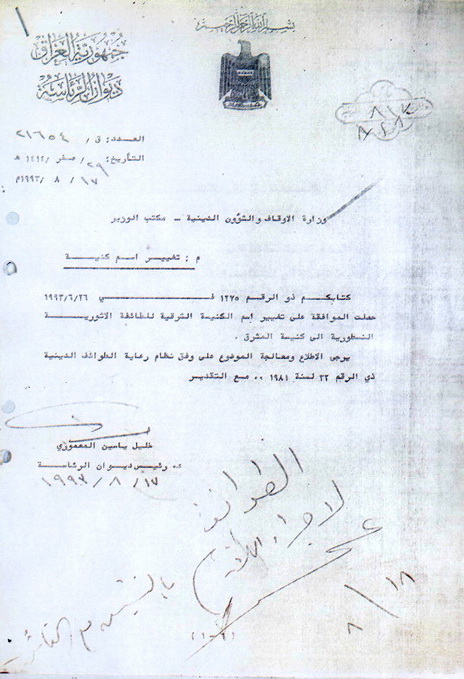 بسم الله الرحمن الرحيم
جمهورية العراق
ديوان الرئاسة
العدد: ق/ ٢١٦٥٤
التأريخ: ٢٩/ صفر /١٤١٤ هـ
١٧ / ٨ /١٩٩٣م
٨١٧
وزارة الاوقاف والشؤون الدينية - مكتب الوزير
م : تغيير اسم كنيسة
كتابكم ذو الرقم ١٢٢٥ في ١٩٩٣/٦/٢٦
حصلت الموافقة على تغيير اسم الكنيسة الشرقية للطائفة الاثورية
النسطورية الى كنيسة المشرق .
يرجى الاطلاع ومعالجة الموضوع على وفق نظام رعاية الطوائف الدينية
ذي الرقم ٣٢ لسنة ١٩٨١ ٠٠ مع التقدير
خليل ياسين المعموري
رئيس ديوان الرئاسة
١٧ / ٨ / ١٩٩٣
الطوائف
لاجراء اللازم
١٨ / ٨
(١-١)